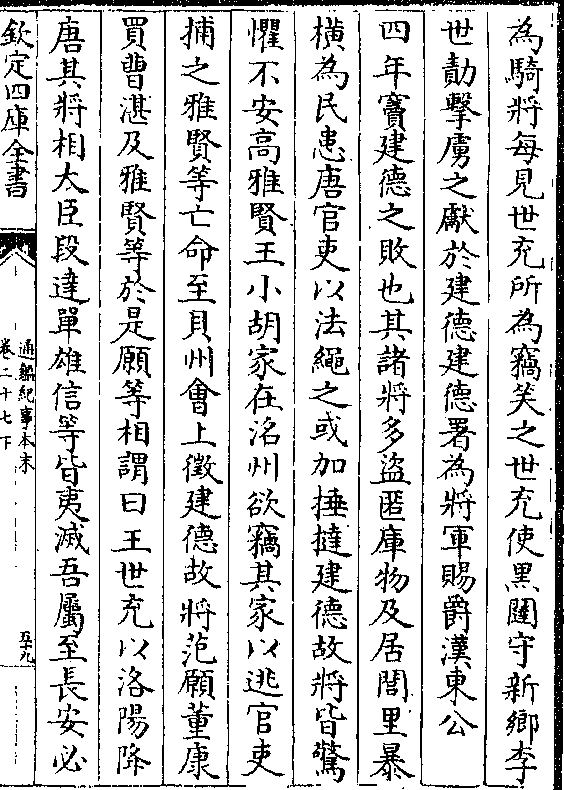 為騎將每見世充所為竊笑之世充使黑闥守新鄉李
世勣擊虜之獻於建德建德署為將軍賜爵漢東公
四年竇建德之敗也其諸將多盜匿庫物及居閭里暴
橫為民患唐官吏以法繩之或加捶撻建德故將皆驚
懼不安高雅賢王小胡家在洺州欲竊其家以逃官吏
捕之雅賢等亡命至貝州會上徵建德故將范願董康
買曹湛及雅賢等於是願等相謂曰王世充以洛陽降
唐其將相大臣段達單雄信等皆夷滅吾屬至長安必
欽定四庫全書
通鑑紀事本末
卷二十七下
五十九